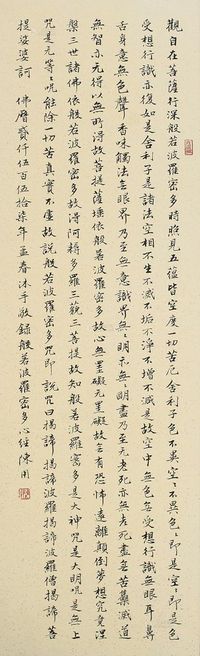 觀自在菩薩行深般若波羅密多時照見五蘊皆空度一切苦厄舍利子色不異空〻不異色〻即是空〻即是色
受想行識亦復如是舍利子是諸法空相不生不滅不垢不淨不增不減是故空中無色無受想行識無眼耳鼻
舌身意無色聲香味觸法無眼界乃至無意識界無〻明亦無〻明盡乃至無老死亦無老死盡無苦集滅道
無智亦無得以無所得故菩提薩埵依般若波羅密多故心無罣礙無罣礙故無有恐怖遠離顛倒夢想究竟涅
槃三世諸佛依般若波羅密多故得阿耨多羅三藐三菩提故知般若波羅密多是大神咒是大明咒是無上
咒是無等〻咒能除一切苦真實不虛故說般若波羅密多咒即說咒曰揭諦揭諦波羅揭諦波羅僧揭諦菩
提娑婆訶 佛曆貳仟伍百伍拾柒年孟春沐手敬錄般若波羅密多心經陳用